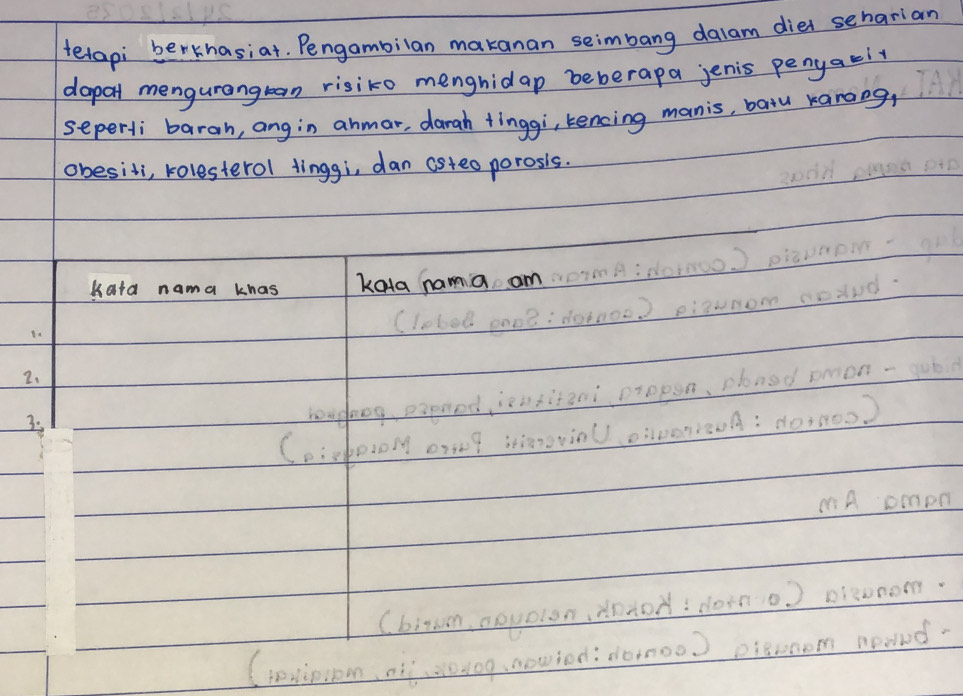 tetapi berkhasiat. Pengambilan makanan seimbang dalam diet seharian
dapat mengurangkan risiko menghidap beberapa jenis penyakit
seperti barah, angin ahmar, darah tinggi, kencing manis, batu karang,
obesiti, kolesterol tinggi, dan osteoporosis.
Kata nama khas kata nama am
1.
2.
3.